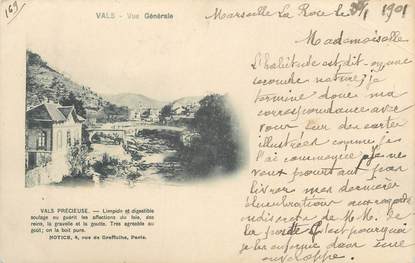 169
VALS - Vue Générale
Marseille La Rose le 30/1 1901
Mademoiselle
L'habitude est, dit-on, une
seconde nature; je
termine donc ma
correspondance avec
vous sur des cartes
illustrées comme je
l'ai commencée. Je ne
veux pourtant pas
livrer mes dernières
élucubrations aux regards
indiscrets de M. M. de
la poste c'est pourquoi
je les enferme dans une
enveloppe.
VALS PRÉCIEUSE. — Limpide et digestible
soulage ou guérit les affections du foie, des
reins, la gravelle et la goutte. Très agréable au
goût; on la boit pure.
NOTICE, 4, rue de Greffulhe, Paris.